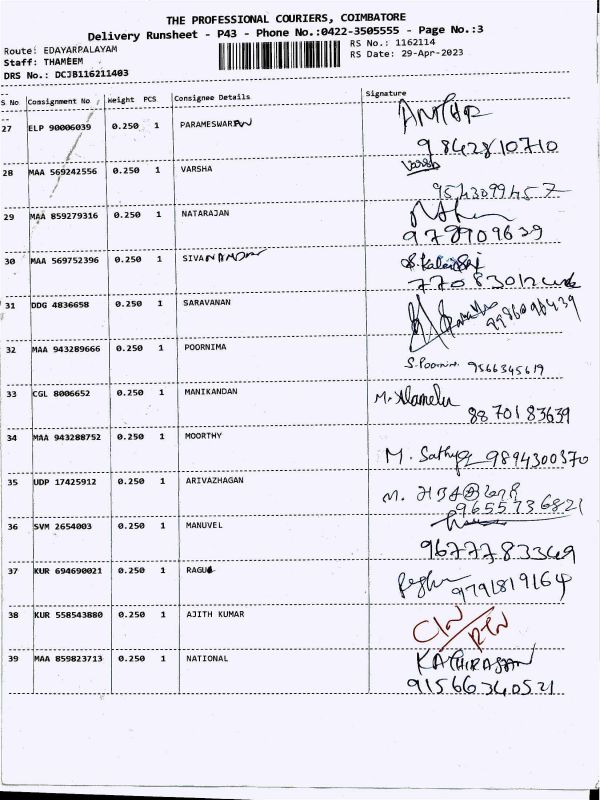 THE PROFESSIONAL COURIERS, COIMBATORE
Delivery Runsheet - P43 - Phone No.:0422-3505555 - Page No.:3
Route: EDAYARPALAYAM RS No.: 1162114
Staff: THAMEEM RS Date: 29-Apr-2023
DRS No.: DCJB116211403
S No Consignment No Weight PCS Consignee Details Signature
27 ELP 90006039 0.250 1 PARAMESWARAN
9842810710
28 MAA 569242556 0.250 1 VARSHA
29 MAA 859279316 0.250 1 NATARAJAN
30 MAA 569752396 0.250 1 SIVA
31 DDG 4836658 0.250 1 SARAVANAN
32 MAA 943289666 0.250 1 POORNIMA
9566345619
33 CGL 8006652 0.250 1 MANIKANDAN
M. Alamelu
8870183639
34 MAA 943288752 0.250 1 MOORTHY
M. Sathya 9894300370
35 UDP 17425912 0.250 1 ARIVAZHAGAN
9655736821
36 SVM 2654003 0.250 1 MANUVEL
9677783349
37 KUR 694690021 0.250 1 RAGU
9791819164
38 KUR 558543880 0.250 1 AJITH KUMAR
39 MAA 859823713 0.250 1 NATIONAL
KATHIRASAN
91566340521